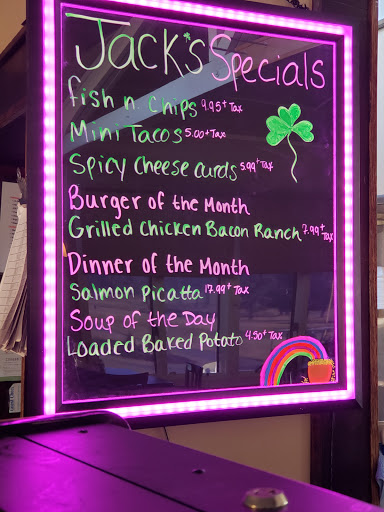 Jack's Specials
fish n chips 9.95+ Tax
Mini Tacos 5.00+ Tax
Spicy Cheese curds 5.99+ Tax
Burger of the Month
Grilled Chicken Bacon Ranch 7.99+ Tax
Dinner of the Month
Salmon Picatta 17.99+ Tax
Soup of the Day
Loaded Baked Potato 4.50+ Tax